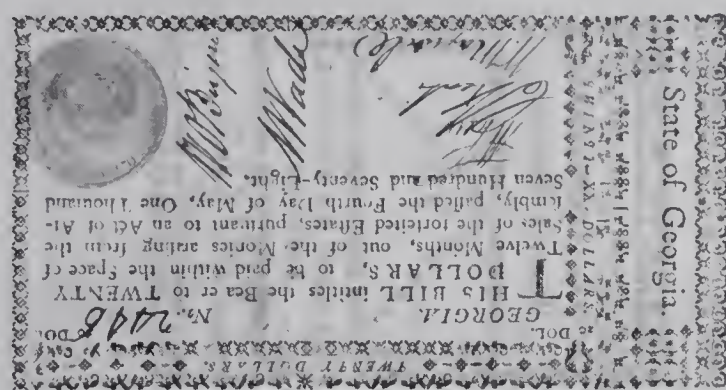 State of Georgia.
TWENTY DOLLARS
DOL. 20 DOL.
GEORGIA. No. 2446
THIS BILL intitles the Bearer to TWENTY
DOLLARS, to be paid within the Space of
Twelve Months, out of the Monies arising from the
Sales of the forfeited Eſtates, purſuant to an Act of Aſ-
ſembly, paſſed the Fourth Day of May, One Thouſand
Seven Hundred and Seventy-Eight.
Wade